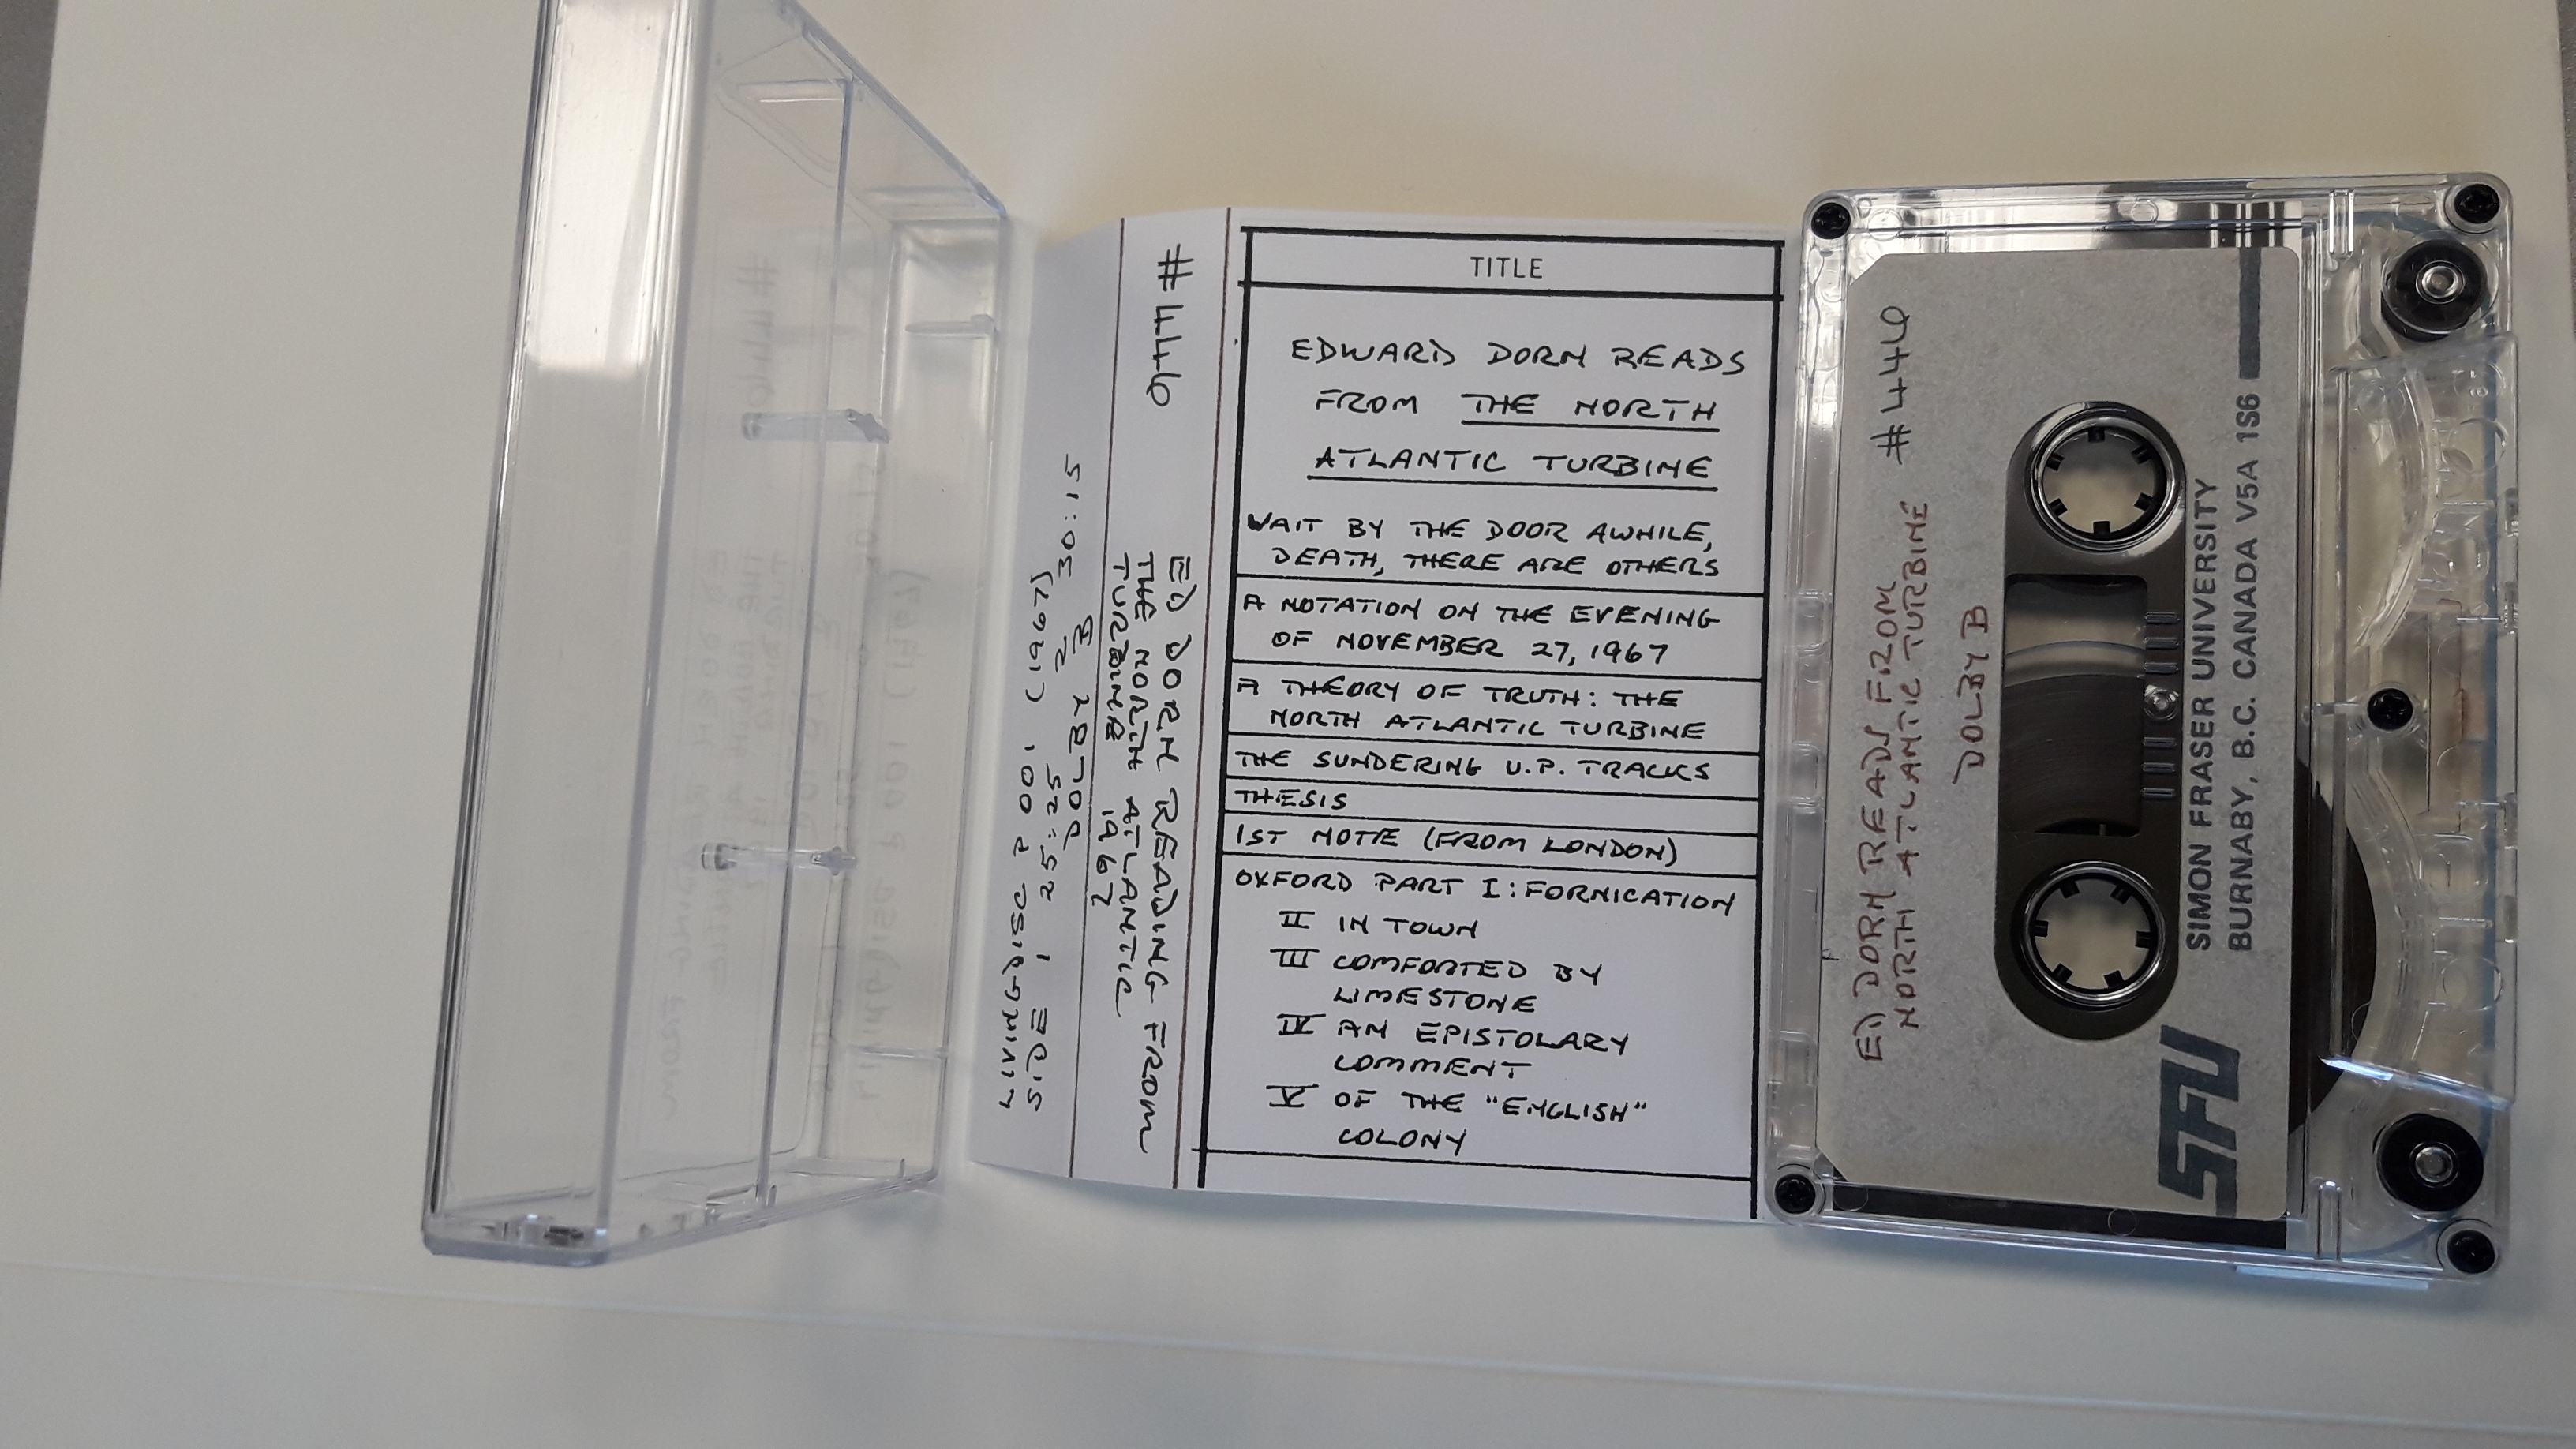 SFU
SIMON FRASER UNIVERSITY
BURNABY, B.C. CANADA V5A 1S6
DOLBY B
ED DORN READS FROM
NORTH ATLANTIC TURBINE
#446
TITLE
EDWARD DORN READS
FROM THE NORTH
ATLANTIC TURBINE
WAIT BY THE DOOR AWHILE,
DEATH, THERE ARE OTHERS
A NOTATION ON THE EVENING
OF NOVEMBER 27, 1967
A THEORY OF TRUTH: THE
NORTH ATLANTIC TURBINE
THE SUNDERING U.P. TRACKS
THESIS
1ST NOTE (FROM LONDON)
OXFORD PART I: FORNICATION
II IN TOWN
III COMFORTED BY
LIMESTONE
IV AN EPISTOLARY
COMMENT
V OF THE "ENGLISH"
COLONY
#446
ED DORN READING FROM
THE NORTH ATLANTIC
TURBINE 1967
LIVINGDISC P 001 (1967)
SIDE 1 25:25 2 30:15
DOLBY B